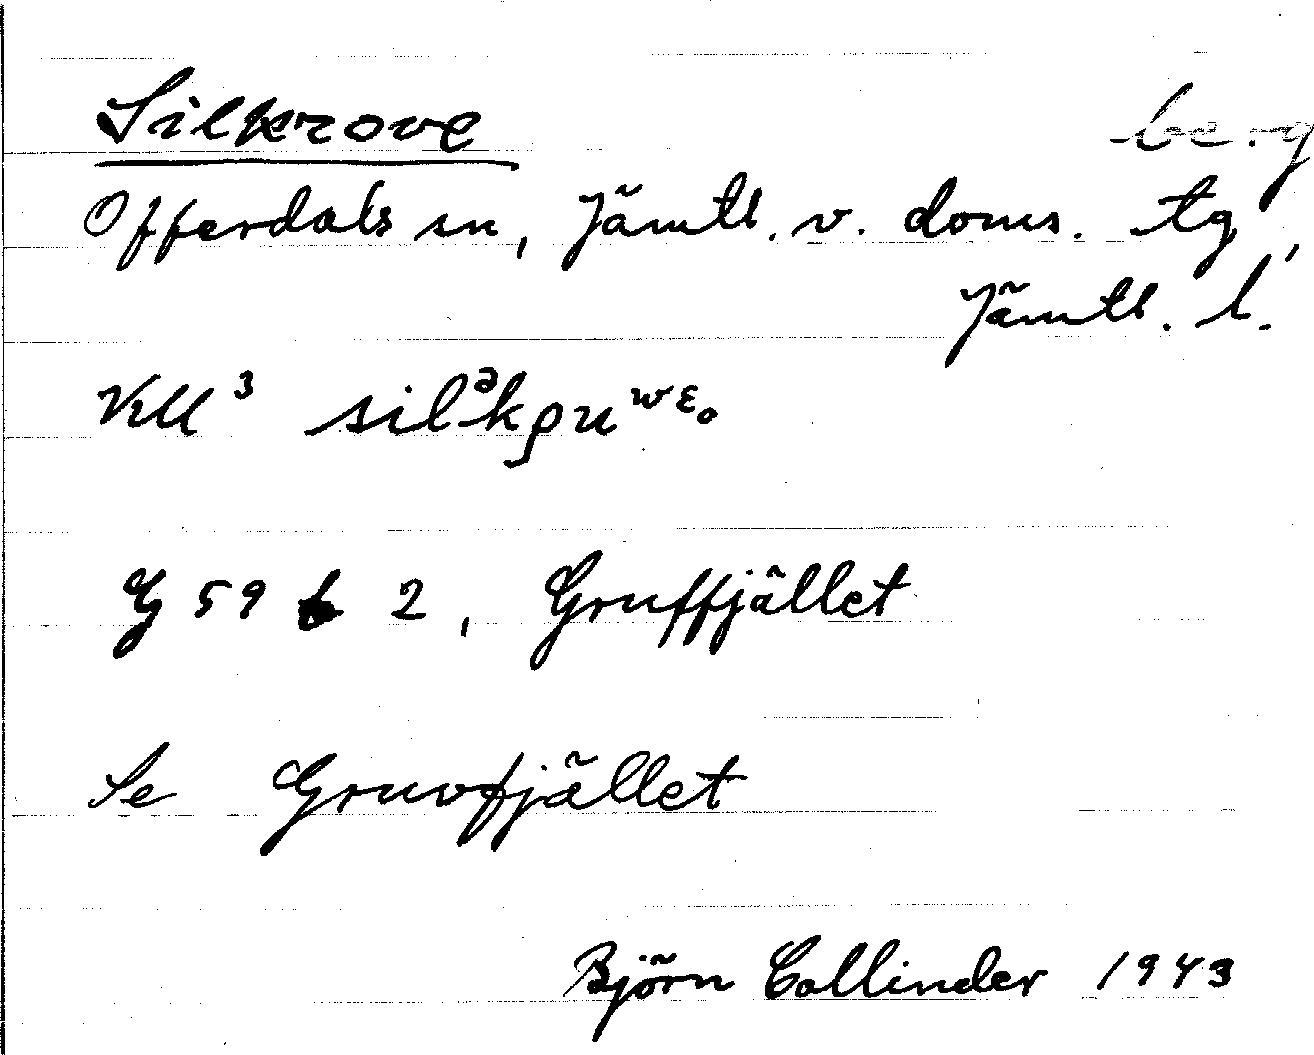 Silkrove berg
Offerdals sn, Jämtl. v. doms. tg,
Jämtl. l.
KU³ silᵊkρuʷᵋ₀
G 59 b 2, Gruffjället
Se Gruvfjället
Björn Collinder 1943